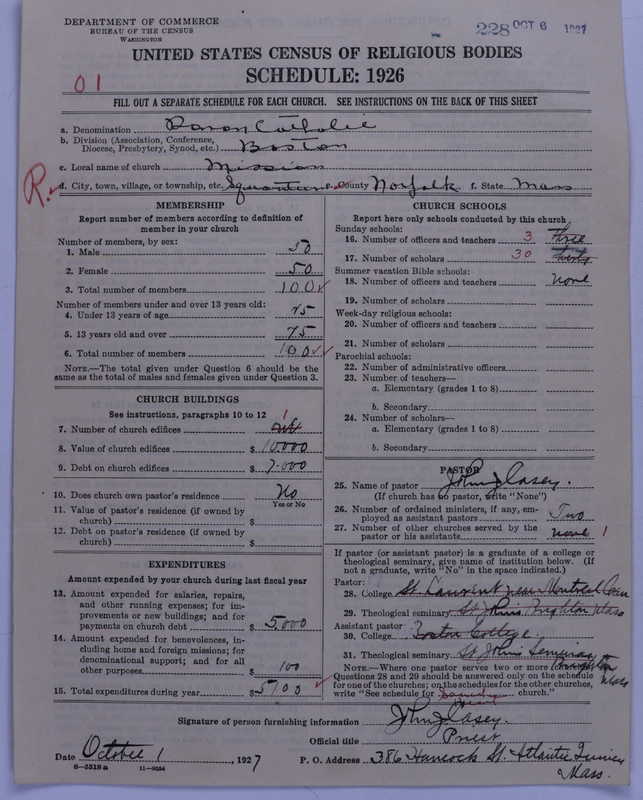 DEPARTMENT OF COMMERCE
BUREAU OF THE CENSUS
WASHINGTON
228 OCT 6 1927
UNITED STATES CENSUS OF RELIGIOUS BODIES
SCHEDULE: 1926
01
FILL OUT A SEPARATE SCHEDULE FOR EACH CHURCH. SEE INSTRUCTIONS ON THE BACK OF THIS SHEET
a. Denomination Roman Catholic
b. Division (Association, Conference, Diocese, Presbytery, Synod, etc.) Boston
c. Local name of church Mission
R. d. City, town, village, or township, etc. Squantum e. County Norfolk f. State Mass
MEMBERSHIP
Report number of members according to definition of member in your church
Number of members, by sex:
1. Male 50
2. Female 50
3. Total number of members 100
Number of members under and over 13 years old:
4. Under 13 years of age 25
5. 13 years old and over 75
6. Total number of members 100
NOTE.—The total given under Question 6 should be the same as the total of males and females given under Question 3.
CHURCH BUILDINGS
See instructions, paragraphs 10 to 12
7. Number of church edifices 1
8. Value of church edifices $ 10.000
9. Debt on church edifices $ 7.000
10. Does church own pastor's residence No
Yes or No
11. Value of pastor's residence (if owned by church) $
12. Debt on pastor's residence (if owned by church) $
EXPENDITURES
Amount expended by your church during last fiscal year
13. Amount expended for salaries, repairs, and other running expenses; for improvements or new buildings; and for payments on church debt $ 5.000
14. Amount expended for benevolences, including home and foreign missions; for denominational support; and for all other purposes $ 100
15. Total expenditures during year $ 5100
CHURCH SCHOOLS
Report here only schools conducted by this church
Sunday schools:
16. Number of officers and teachers 3 three
17. Number of scholars 30 thirty
Summer vacation Bible schools:
18. Number of officers and teachers none
19. Number of scholars
Week-day religious schools:
20. Number of officers and teachers
21. Number of scholars
Parochial schools:
22. Number of administrative officers
23. Number of teachers—
a. Elementary (grades 1 to 8)
b. Secondary
24. Number of scholars—
a. Elementary (grades 1 to 8)
b. Secondary
PASTOR
25. Name of pastor John J Casey.
(If church has no pastor, write "None")
26. Number of ordained ministers, if any, employed as assistant pastors Two
27. Number of other churches served by the pastor or his assistants none 1
If pastor (or assistant pastor) is a graduate of a college or theological seminary, give name of institution below. (If not a graduate, write "No" in the space indicated.)
Pastor:
28. College St Laurent near Montreal Can
29. Theological seminary St Johns Brighton Mass
Assistant pastor:
30. College Boston College
31. Theological seminary St Johns Seminary Brighton Mass
NOTE.—Where one pastor serves two or more churches, Questions 28 and 29 should be answered only on the schedule for one of the churches; on the schedules for the other churches, write "See schedule for church."
Signature of person furnishing information John J Casey.
Official title Priest
Date October 1, 1927 P. O. Address 386 Hancock St. Atlantic Quincy Mass.
8—5518a 11—9034